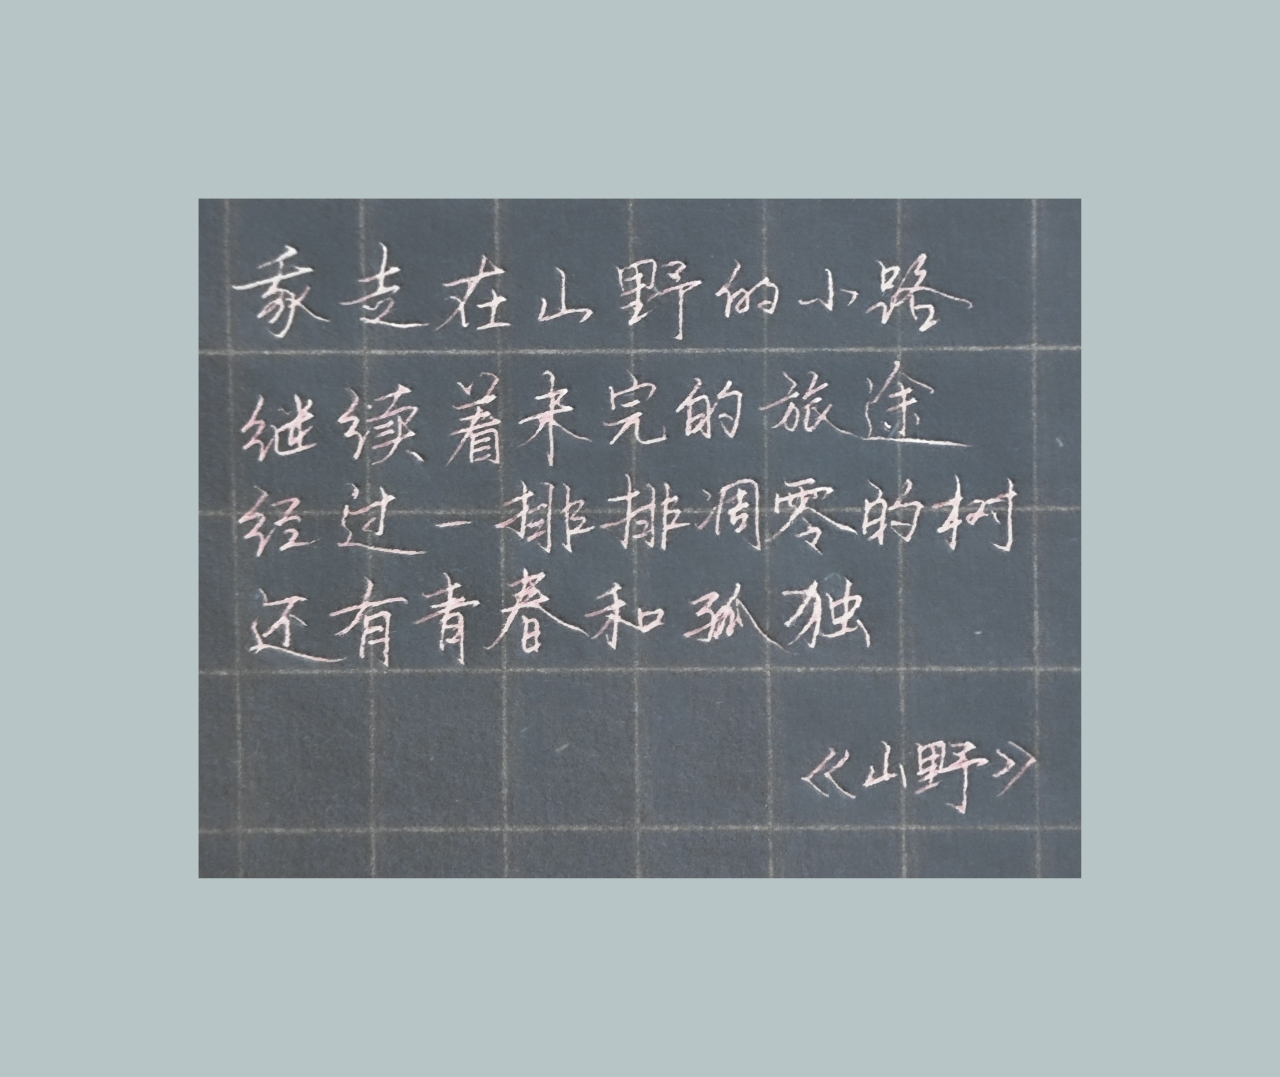 我走在山野的小路
继续着未完的旅途
经过一排排凋零的树
还有青春和孤独
《山野》